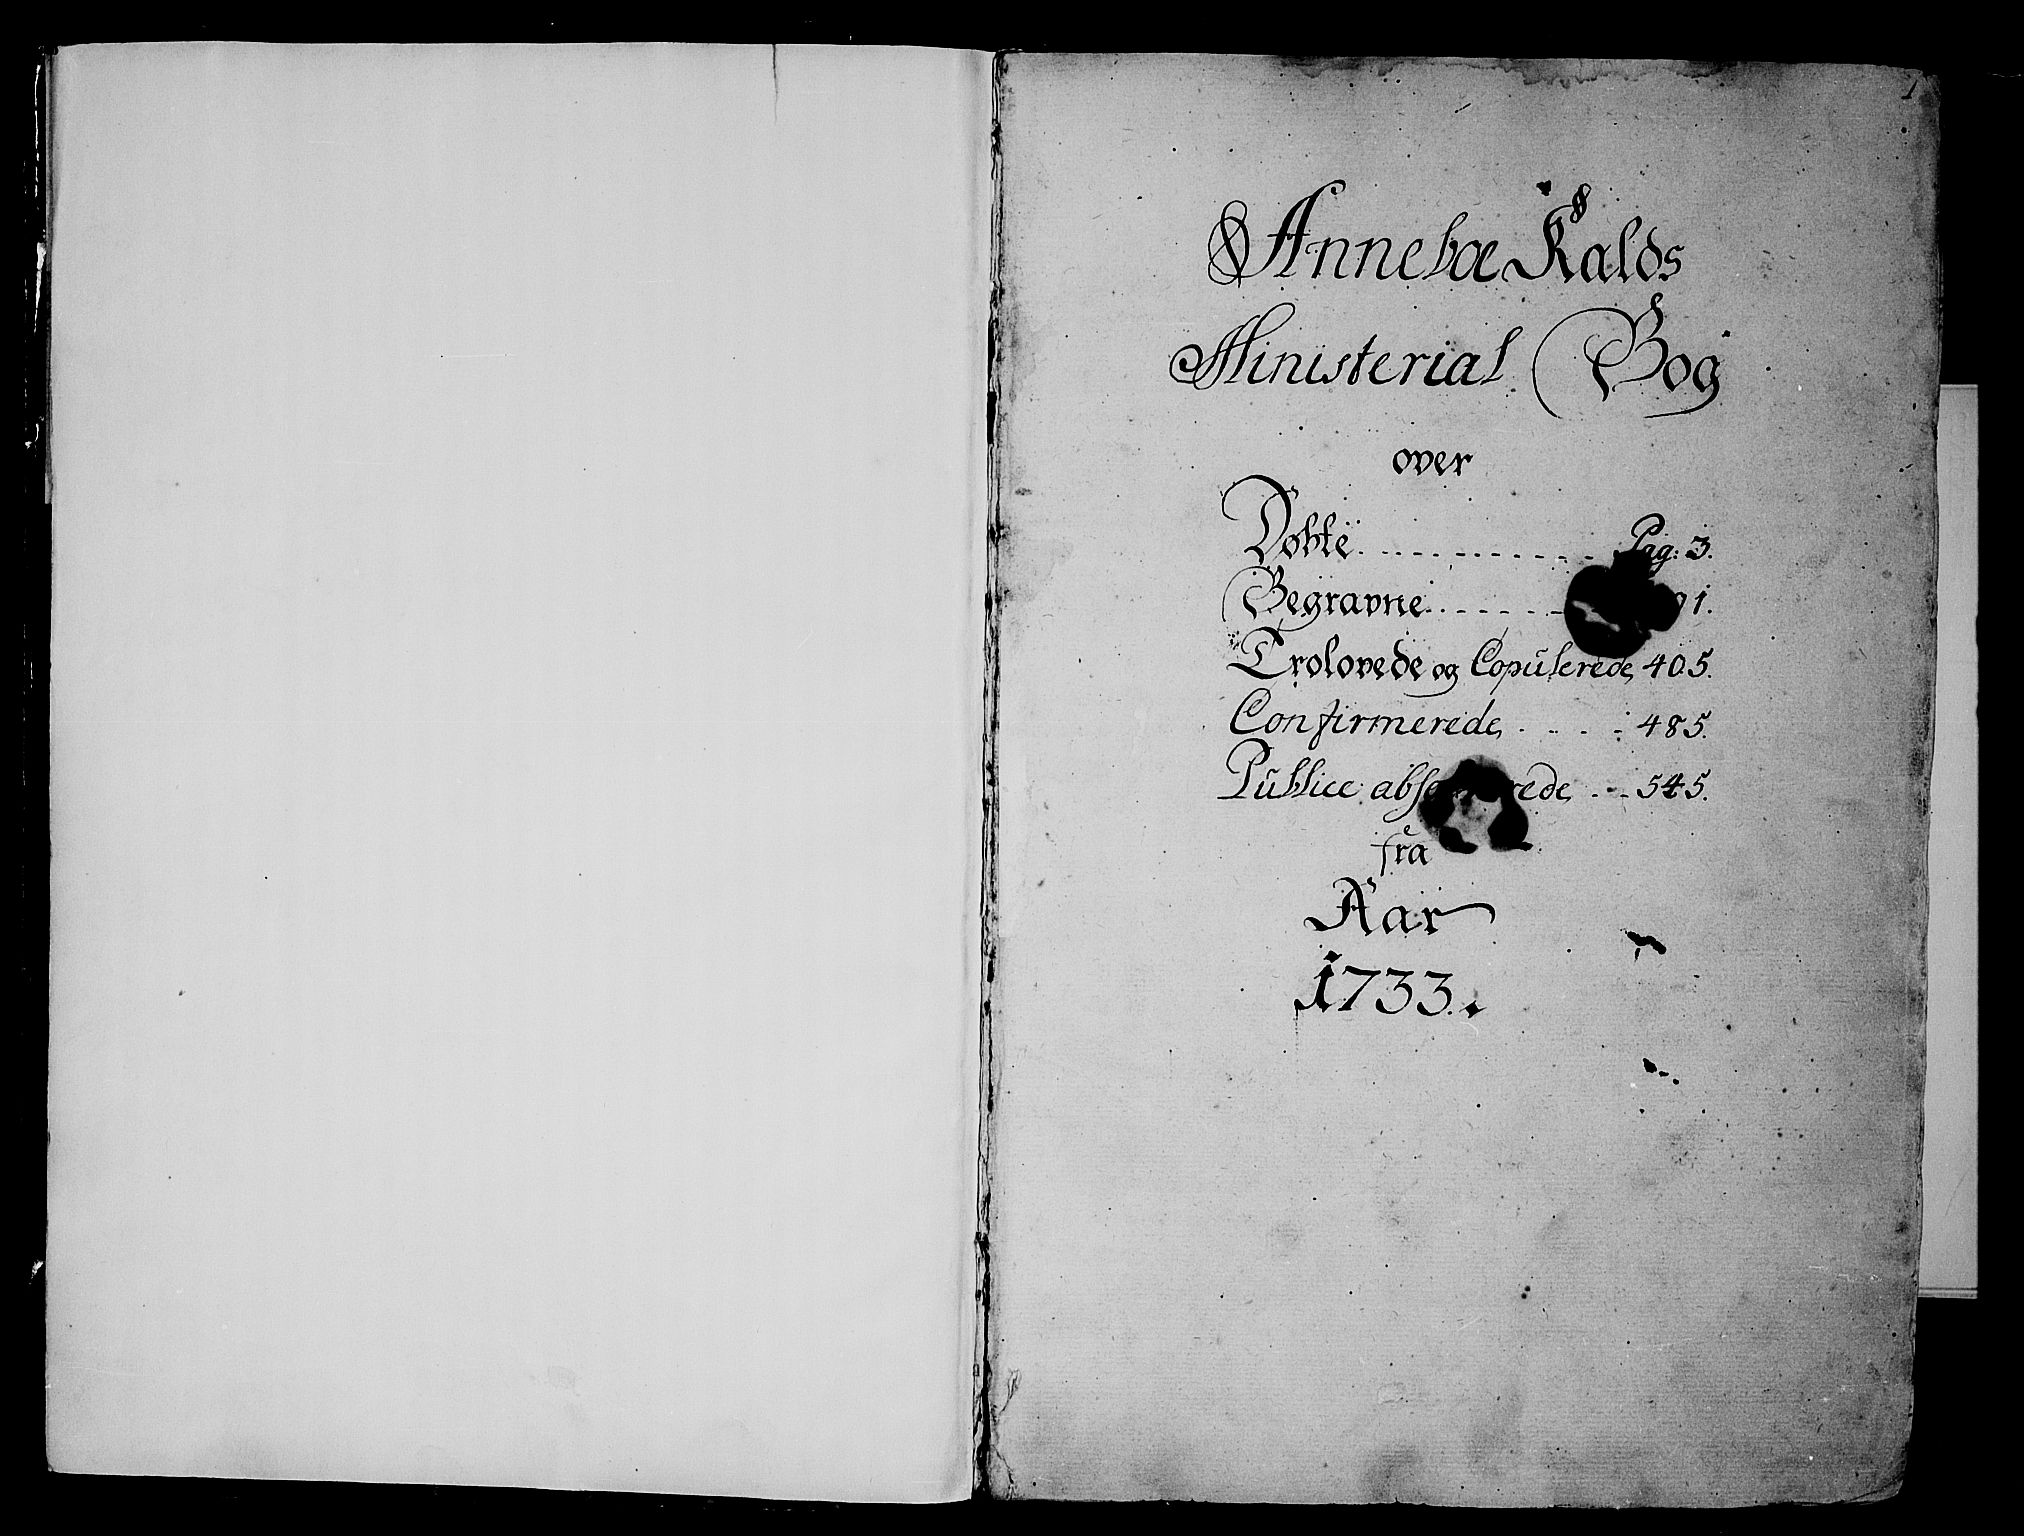 1
Anneboe Kalds
Ministerial Bog
over
Døbte Pag: 3.
Begravne 91.
Trolovede og Copulerede 405.
Confirmerede 485.
Publice 545.
fra
Aar
1733.